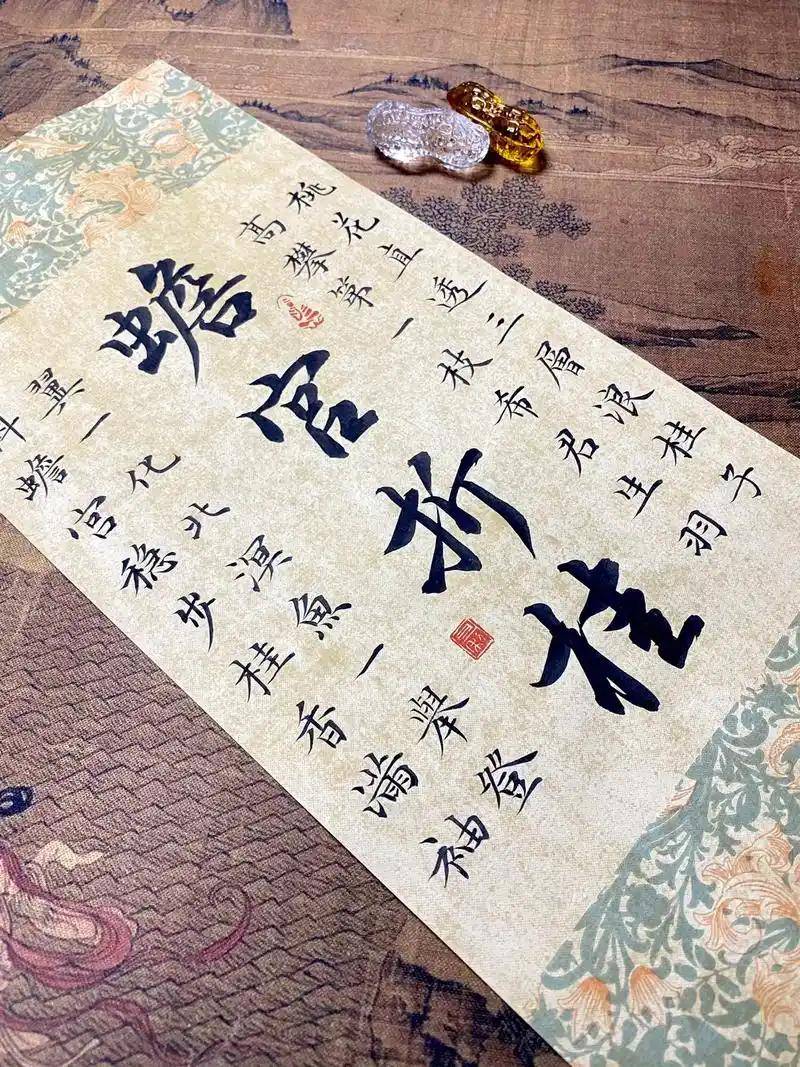 桃花直透三層浪桂子
高攀第一枝希君生羽
蟾宫折桂
翼一化北溟魚一舉登
科蟾宫稳步桂香滿袖